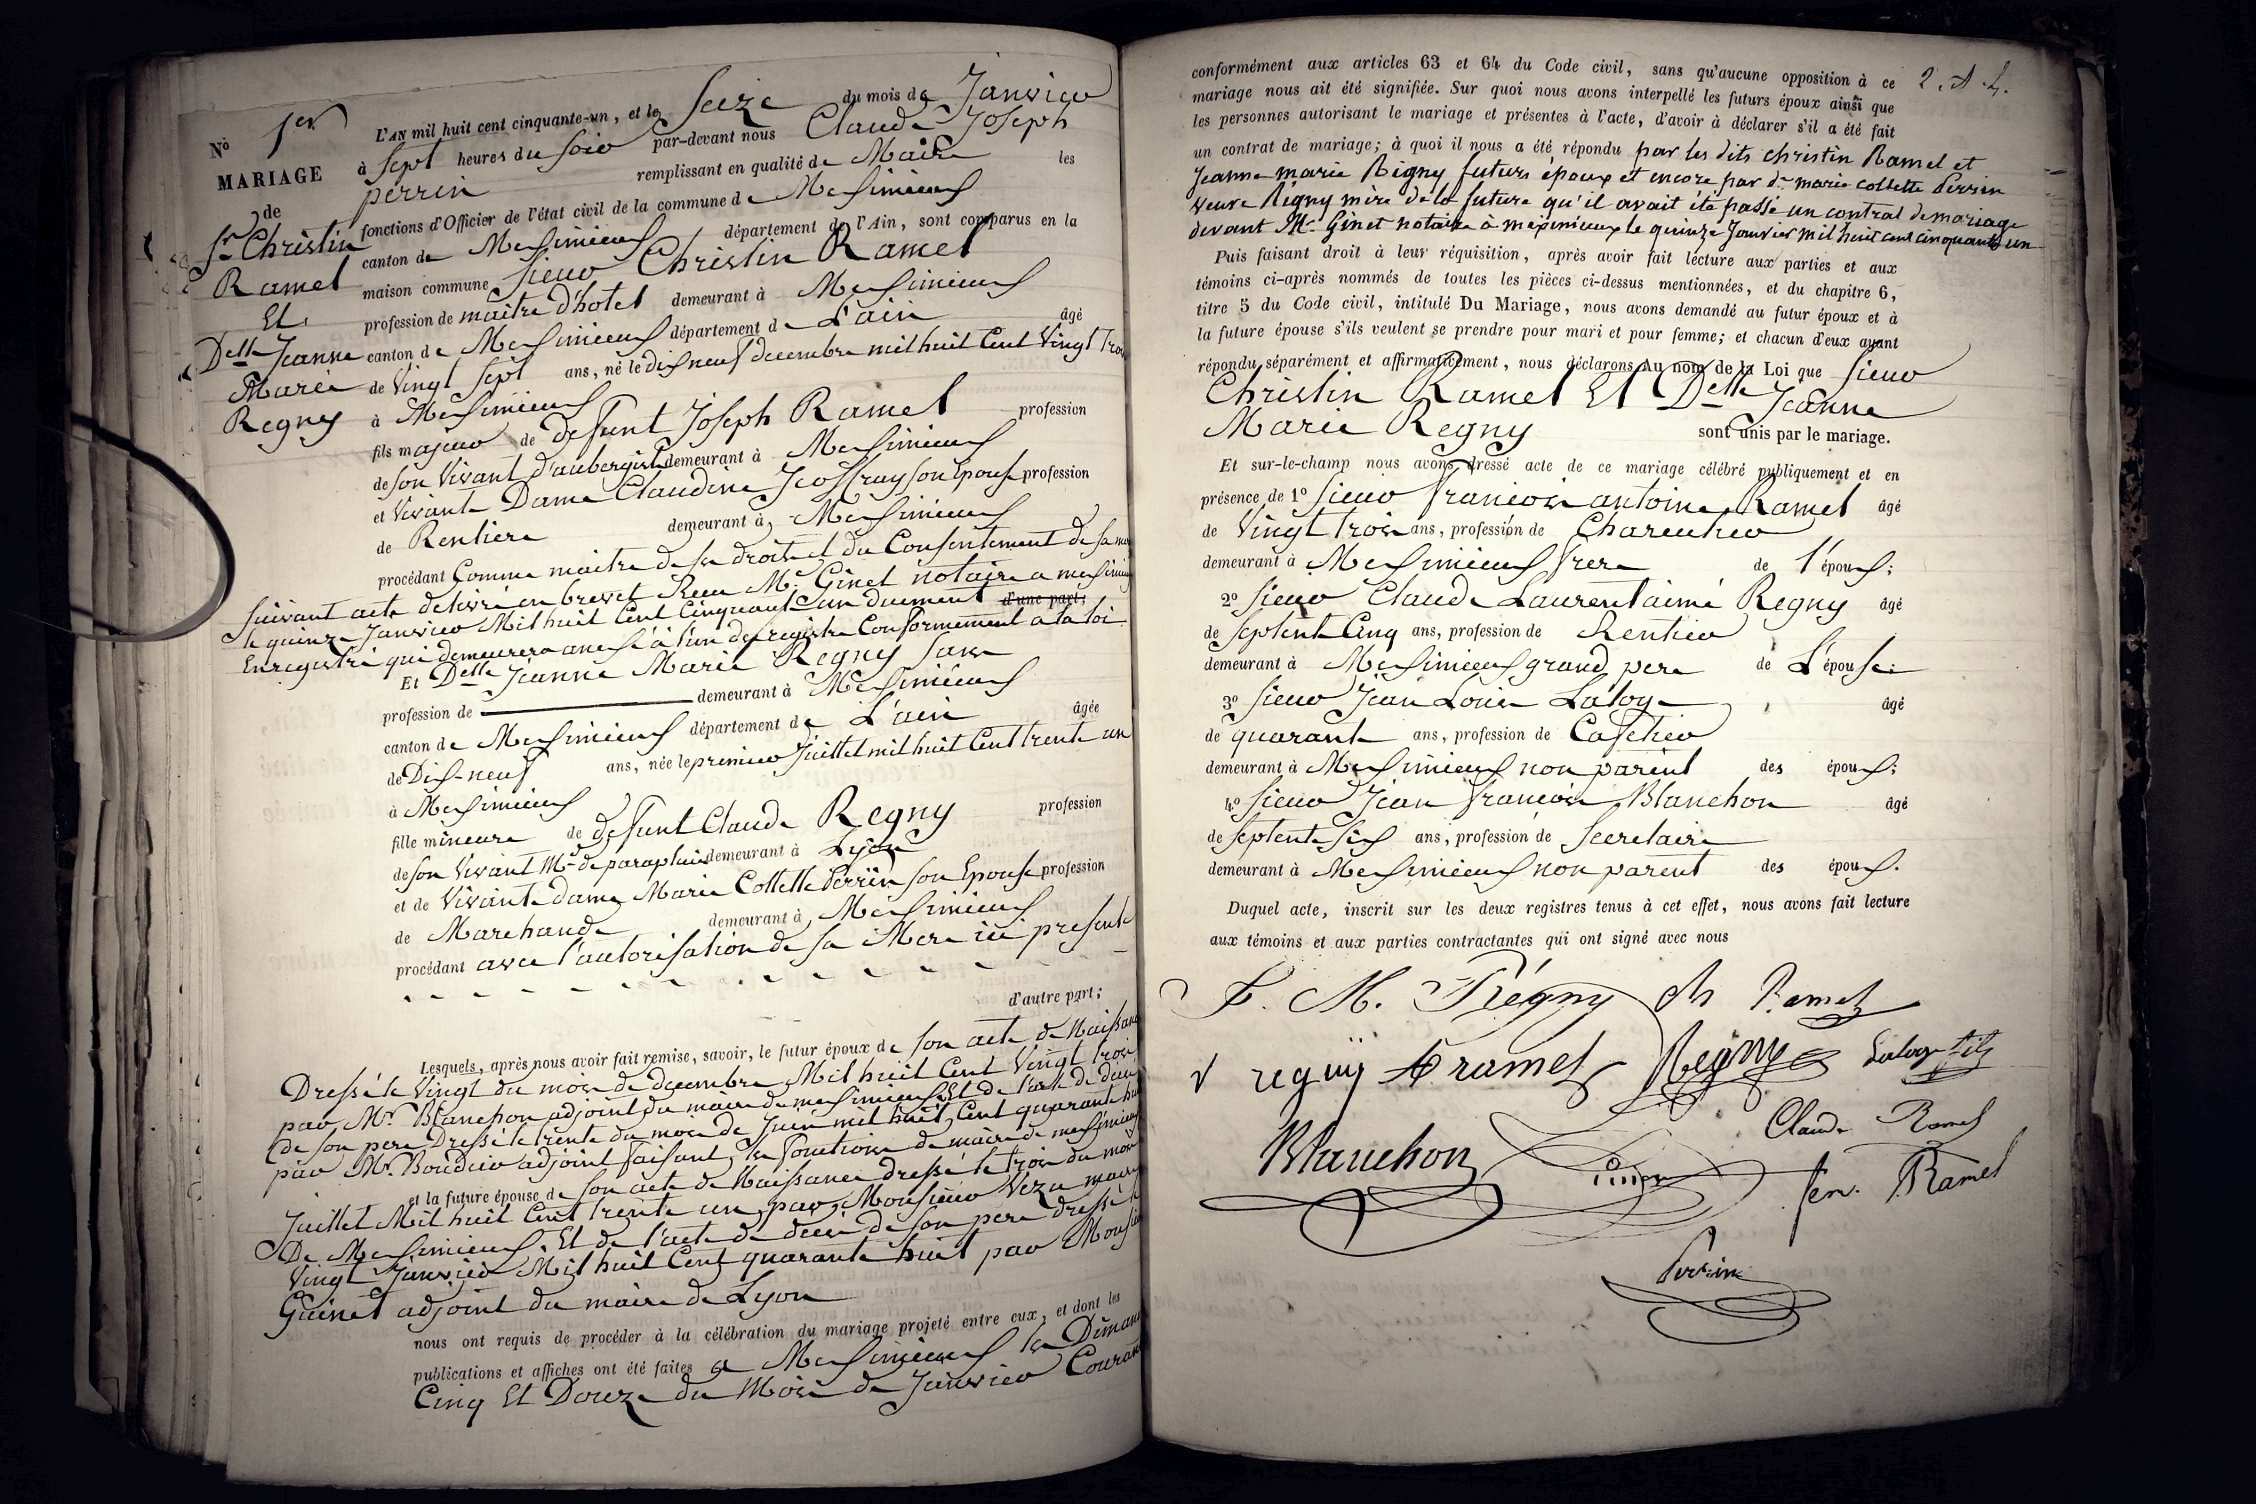 Nº 1er
MARIAGE
de
Sr. Christin
Ramel
Et
Delle Jeanne
Marie
Regny
L'AN mil huit cent cinquante-un, et le Seize du mois de Janvier
à Sept heures du Soir par-devant nous Claude Joseph
perrin remplissant en qualité de Maire les
fonctions d'Officier de l'état civil de la commune de Messimieux
canton de Messimieux département de l'Ain, sont comparus en la
maison commune Sieur Christin Ramel
profession de maitre d'hotel demeurant à Messimieux
canton de Messimieux département de L'ain âgé
de Vingt Sept ans, né le dixneuf decembre mil huit Cent Vingt trois
à Messimieux
fils majeur de defunt Joseph Ramel profession
de son Vivant d'aubergiste demeurant à Messimieux
et Vivante Dame Claudine Jeoffray son Epouse profession
de Rentiere demeurant à Messimieux
procédant Comme maitre de ses droits et du Consentement de sa
Suivant acte delivré en brevet Reçu Me. Ginet notaire a messimieux
le quinze Janvier Mil huit Cent Cinquante un duement d'une part;
Enregistré qui demeurera anexé à l'un des registre Conformement a la loi
Et Delle Jeanne Marie Regny Sans
profession de demeurant à Messimieux
canton de Messimieux département de L'ain âgée
de Dix-neuf ans, née le premier Juillet mil huit Cent trente un
à Messimieux
fille mineure de defunt Claude Regny profession
de son Vivant Md. de parapluies demeurant à Lyon
et de Vivante dame Marie Collette Perrin son Epouse profession
de Marchande demeurant à Messimieux
procédant avec l'autorisation de sa Mere ici presente
d'autre part;
Lesquels, après nous avoir fait remise, savoir, le futur époux de son acte de Naissance
Dressé le Vingt du mois de decembre Mil huit Cent Vingt trois
par Mr. Blanchon adjoint du maire de messimieux Et de l'acte de deces
de son pere Dressé le trente du mois de Juin mil huit Cent quarante
par Mr. Boudier adjoint faisant les fonctions de maire de messimieux
et la future épouse de son acte de Naissance dressé le trois du mois
Juillet Mil huit Cent trente un par Monsieur Vezu maire
De Messimieux. Et de l'acte de deces de son pere dressé le
Vingt Janvier Mil huit Cent quarante huit par Monsieur
Guinet adjoint du maire de Lyon
nous ont requis de procéder à la célébration du mariage projeté entre eux, et dont les
publications et affiches ont été faites a Messimieux les Dimanches
Cinq Et Douze du Mois de Janvier Courant
2. A L.
conformément aux articles 63 et 64 du Code civil, sans qu'aucune opposition à ce
mariage nous ait été signifiée. Sur quoi nous avons interpellé les futurs époux ainsi que
les personnes autorisant le mariage et présentes à l'acte, d'avoir à déclarer s'il a été fait
un contrat de mariage; à quoi il nous a été répondu par les dits christin Ramel et
Jeanne marie Régny futurs époux et encore par de marie collette Perrin
veuve Régny mère de la future qu'il avait été passé un contrat de mariage
devant Me. Ginet notaire à meximieux le quinze Janvier mil huit cent cinquante un
Puis faisant droit à leur réquisition, après avoir fait lecture aux parties et aux
témoins ci-après nommés de toutes les pièces ci-dessus mentionnées, et du chapitre 6,
titre 5 du Code civil, intitulé Du Mariage, nous avons demandé au futur époux et à
la future épouse s'ils veulent se prendre pour mari et pour femme; et chacun d'eux ayant
répondu séparément et affirmativement, nous déclarons Au nom de la Loi que Sieur
Christin Ramel Et Delle Jeanne
Marie Regny sont unis par le mariage.
Et sur-le-champ nous avons dressé acte de ce mariage célébré publiquement et en
présence de 1º Sieur francois antoine Ramel âgé
de Vingt trois ans, profession de Charcutier
demeurant à Messimieux frere de l'époux;
2º Sieur Claude Laurent aimé Regny âgé
de Septente Cinq ans, profession de Rentier
demeurant à Messimieux grand pere de L'épouse;
3º Sieur Jean Louis Laloge âgé
de quarante ans, profession de Cafetier
demeurant à Messimieux non parent des époux;
4º Sieur Jean francois Blanchon âgé
de Septente Six ans, profession de Secretaire
demeurant à Messimieux non parent des époux.
Duquel acte, inscrit sur les deux registres tenus à cet effet, nous avons fait lecture
aux témoins et aux parties contractantes qui ont signé avec nous
J. M. Régny Ch Ramel
v regny A ramel Regny Laloge fils
Claude Ramel
Blanchon Perrin
fen. Ramel
Perrin